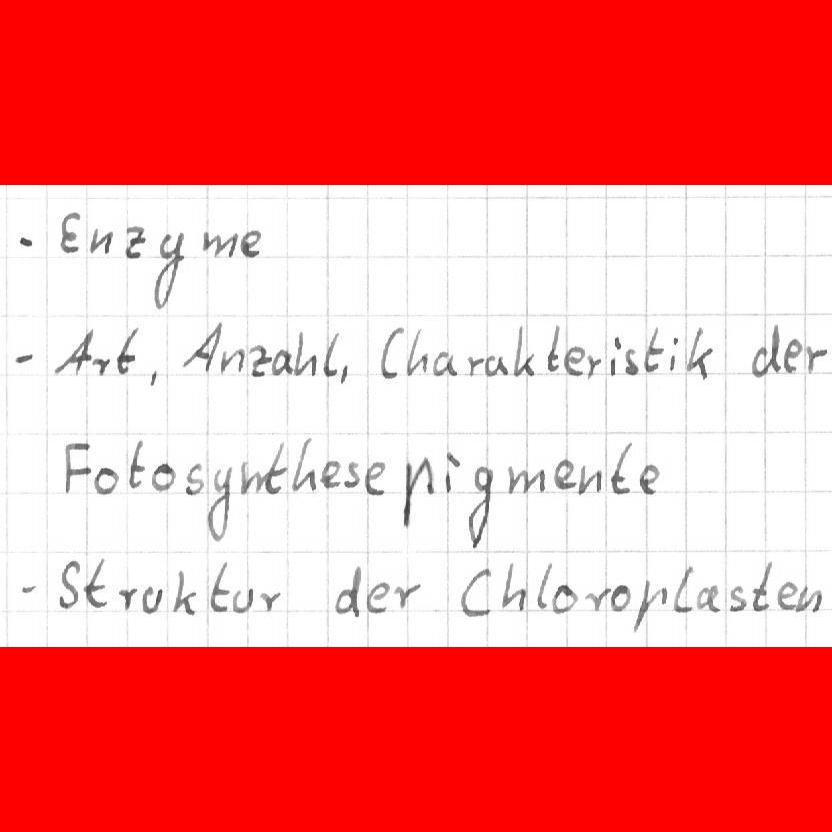 - Enzyme
- Art, Anzahl, Charakteristik der
Fotosynthesepigmente
- Struktur der Chloroplasten